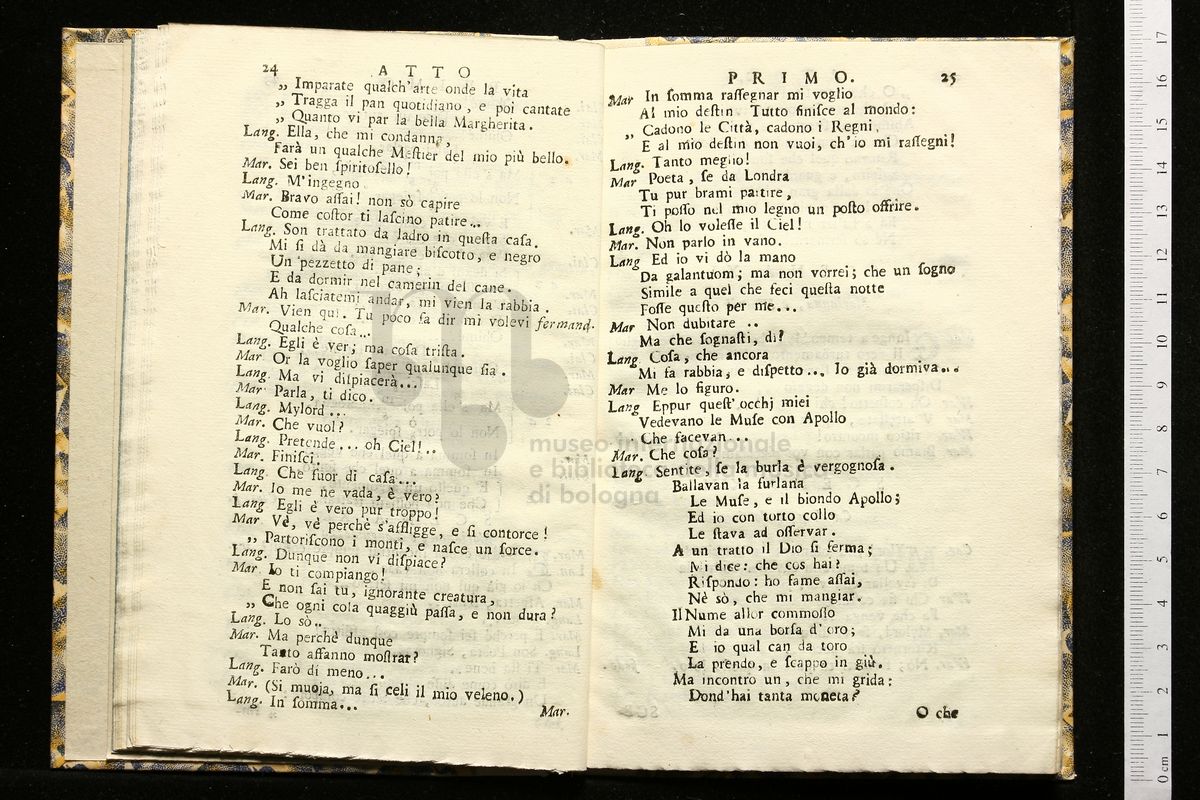 24 ATTO
„ Imparate qualch'arte onde la vita
„ Tragga il pan quotidiano, e poi cantate
„ Quanto vi par la bella Margherita.
Lang. Ella, che mi condanna,
Farà un qualche Meſtier del mio più bello.
Mar. Sei ben ſpiritoſello!
Lang. M'ingegno
Mar. Bravo aſſai! non sò capire
Come coſtor ti laſcino patire..
Lang. Son trattato da ladro in queſta caſa.
Mi ſi dà da mangiare biſcotto, e negro
Un pezzetto di pane;
E da dormir nel camerin del cane.
Ah laſciatemi andar, mi vien la rabbia.
Mar. Vien quì. Tu poco fa dir mi volevi fermand.
Qualche coſa...
Lang. Egli è ver; ma coſa triſta.
Mar. Or la voglio ſaper qualunque ſia.
Lang. Ma vi diſpiacerà...
Mar. Parla, ti dico.
Lang. Mylord...
Mar. Che vuol?
Lang. Pretende... oh Ciel!..
Mar. Finiſci;
Lang. Che fuor di caſa...
Mar. Io me ne vada, è vero?
Lang Egli è vero pur troppo!
Mar Vè, vè perchè s'affligge, e ſi contorce!
„ Partoriſcono i monti, e naſce un ſorce.
Lang. Dunque non vi diſpiace?
Mar. Io ti compiango!
E non ſai tu, ignorante creatura,
„ Che ogni coſa quaggiù paſſa, e non dura?
Lang. Lo sò..
Mar. Ma perchè dunque
Tanto affanno moſtrar?
Lang. Farò di meno...
Mar. (Si muoja, ma ſi celi il mio veleno.)
Lang. In ſomma...
Mar.
PRIMO. 25
Mar In ſomma raſſegnar mi voglio
Al mio deſtin. Tutto finiſce al mondo:
„ Cadono le Città, cadono i Regni,
E al mio deſtin non vuoi, ch'io mi raſſegni!
Lang. Tanto meglio!
Mar Poeta, ſe da Londra
Tu pur brami partire,
Ti poſſo nel mio legno un poſto offrire.
Lang. Oh lo voleſſe il Ciel!
Mar. Non parlo in vano.
Lang Ed io vi dò la mano
Da galantuom; ma non vorrei; che un ſogno
Simile a quel che feci queſta notte
Foſſe queſto per me...
Mar Non dubitare ..
Ma che ſognaſti, di?
Lang. Coſa, che ancora
Mi fa rabbia, e diſpetto... Io già dormiva...
Mar Me lo figuro.
Lang Eppur queſt'occhj miei
Vedevano le Muſe con Apollo
Che facevan...
Mar. Che coſa?
Lang Sentite, ſe la burla è vergognoſa.
Ballavan la furlana
Le Muſe, e il biondo Apollo;
Ed io con torto collo
Le ſtava ad oſſervar.
A un tratto il Dio ſi ferma;
Mi dice: che cos hai?
Riſpondo: ho fame aſſai,
Nè sò, che mi mangiar.
Il Nume allor commoſſo
Mi da una borſa d'oro;
E io qual can da toro
La prendo, e ſcappo in giù.
Ma incontro un, che mi grida:
Dond'hai tanta moneta?
O che
museo internazionale
e biblioteca della musica
di bologna
0 cm 1 2 3 4 5 6 7 8 9 10 11 12 13 14 15 16 17